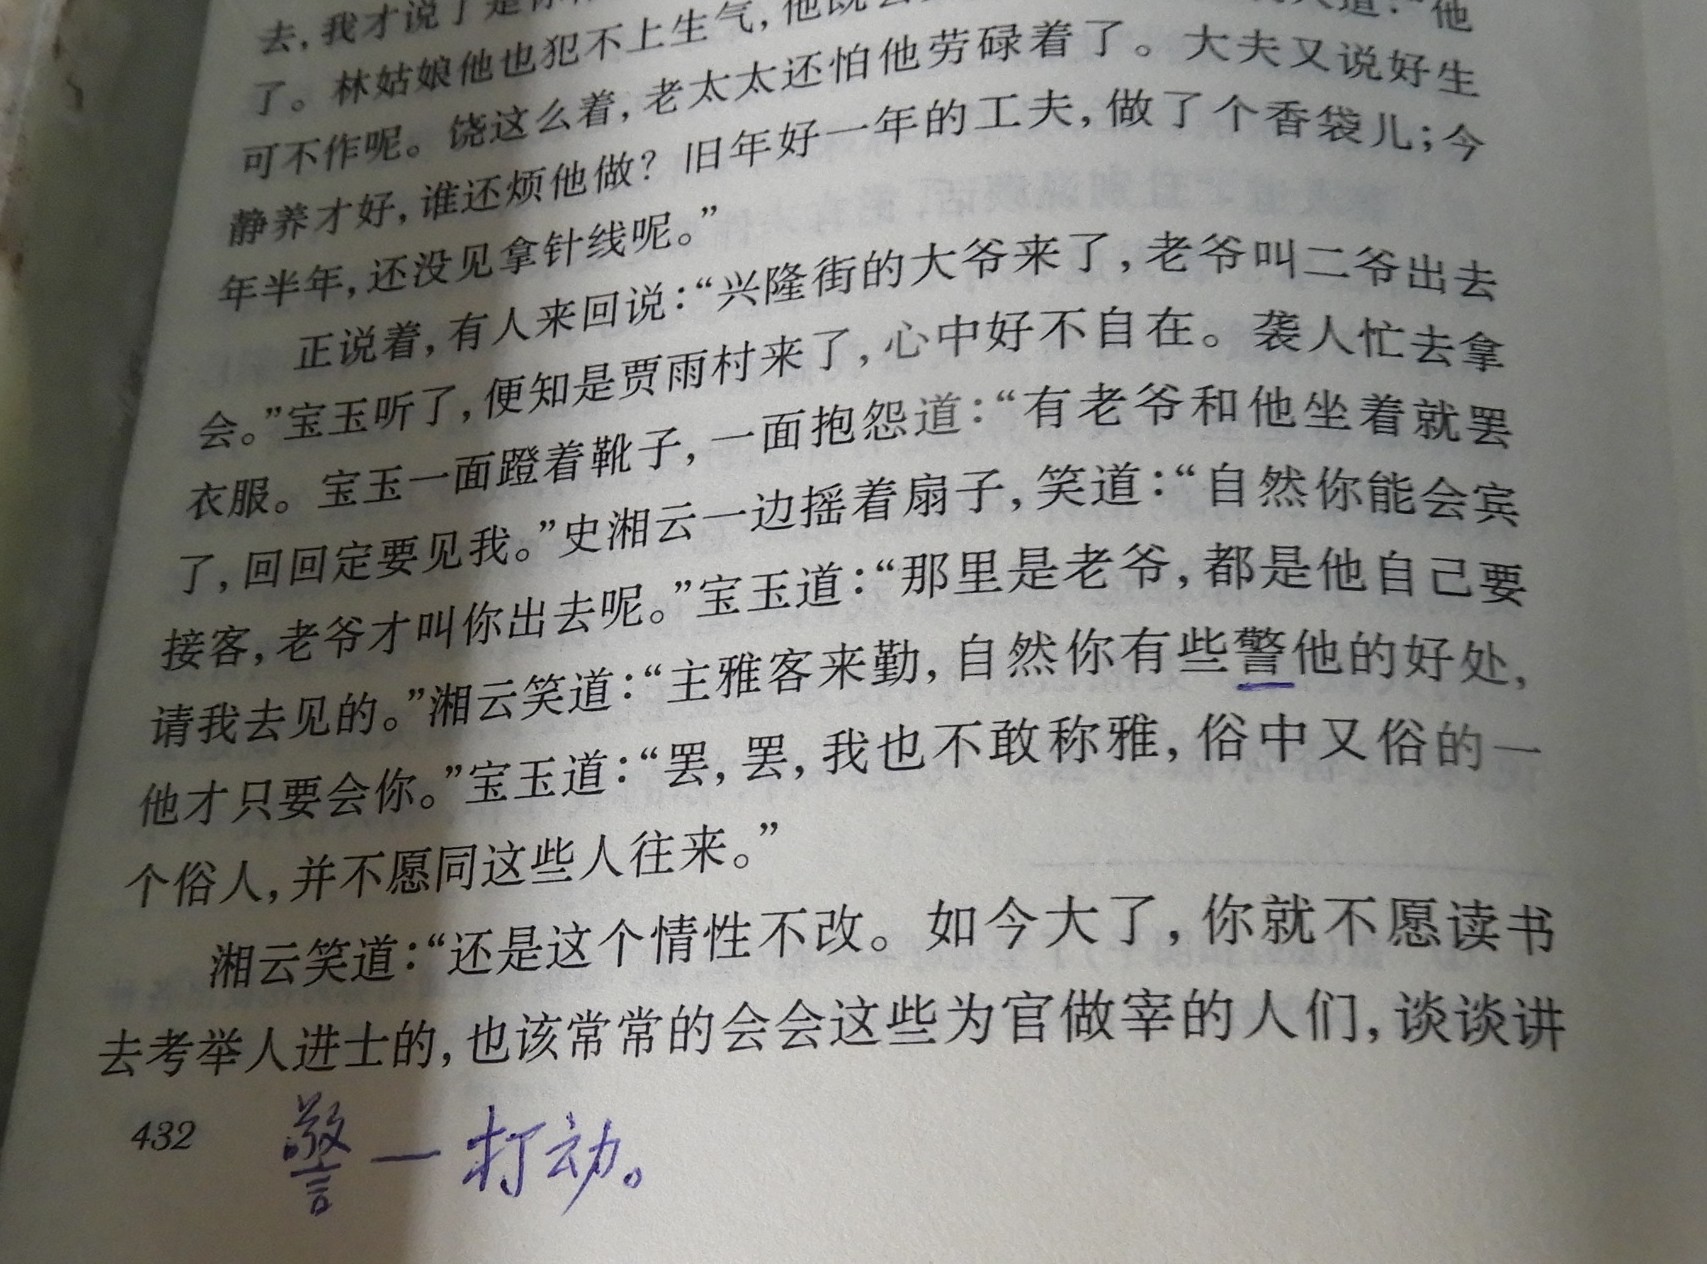 去，我才说了是你
了。林姑娘他也犯不上生气，他既会
道：“他
可不作呢。饶这么着，老太太还怕他劳碌着了。大夫又说好生
静养才好，谁还烦他做？旧年好一年的工夫，做了个香袋儿；今
年半年，还没见拿针线呢。”
正说着，有人来回说：“兴隆街的大爷来了，老爷叫二爷出去
会。”宝玉听了，便知是贾雨村来了，心中好不自在。袭人忙去拿
衣服。宝玉一面蹬着靴子，一面抱怨道：“有老爷和他坐着就罢
了，回回定要见我。”史湘云一边摇着扇子，笑道：“自然你能会宾
接客，老爷才叫你出去呢。”宝玉道：“那里是老爷，都是他自己要
请我去见的。”湘云笑道：“主雅客来勤，自然你有些警他的好处，
他才只要会你。”宝玉道：“罢，罢，我也不敢称雅，俗中又俗的一
个俗人，并不愿同这些人往来。”
湘云笑道：“还是这个情性不改。如今大了，你就不愿读书
去考举人进士的，也该常常的会会这些为官做宰的人们，谈谈讲
432
警—打动。